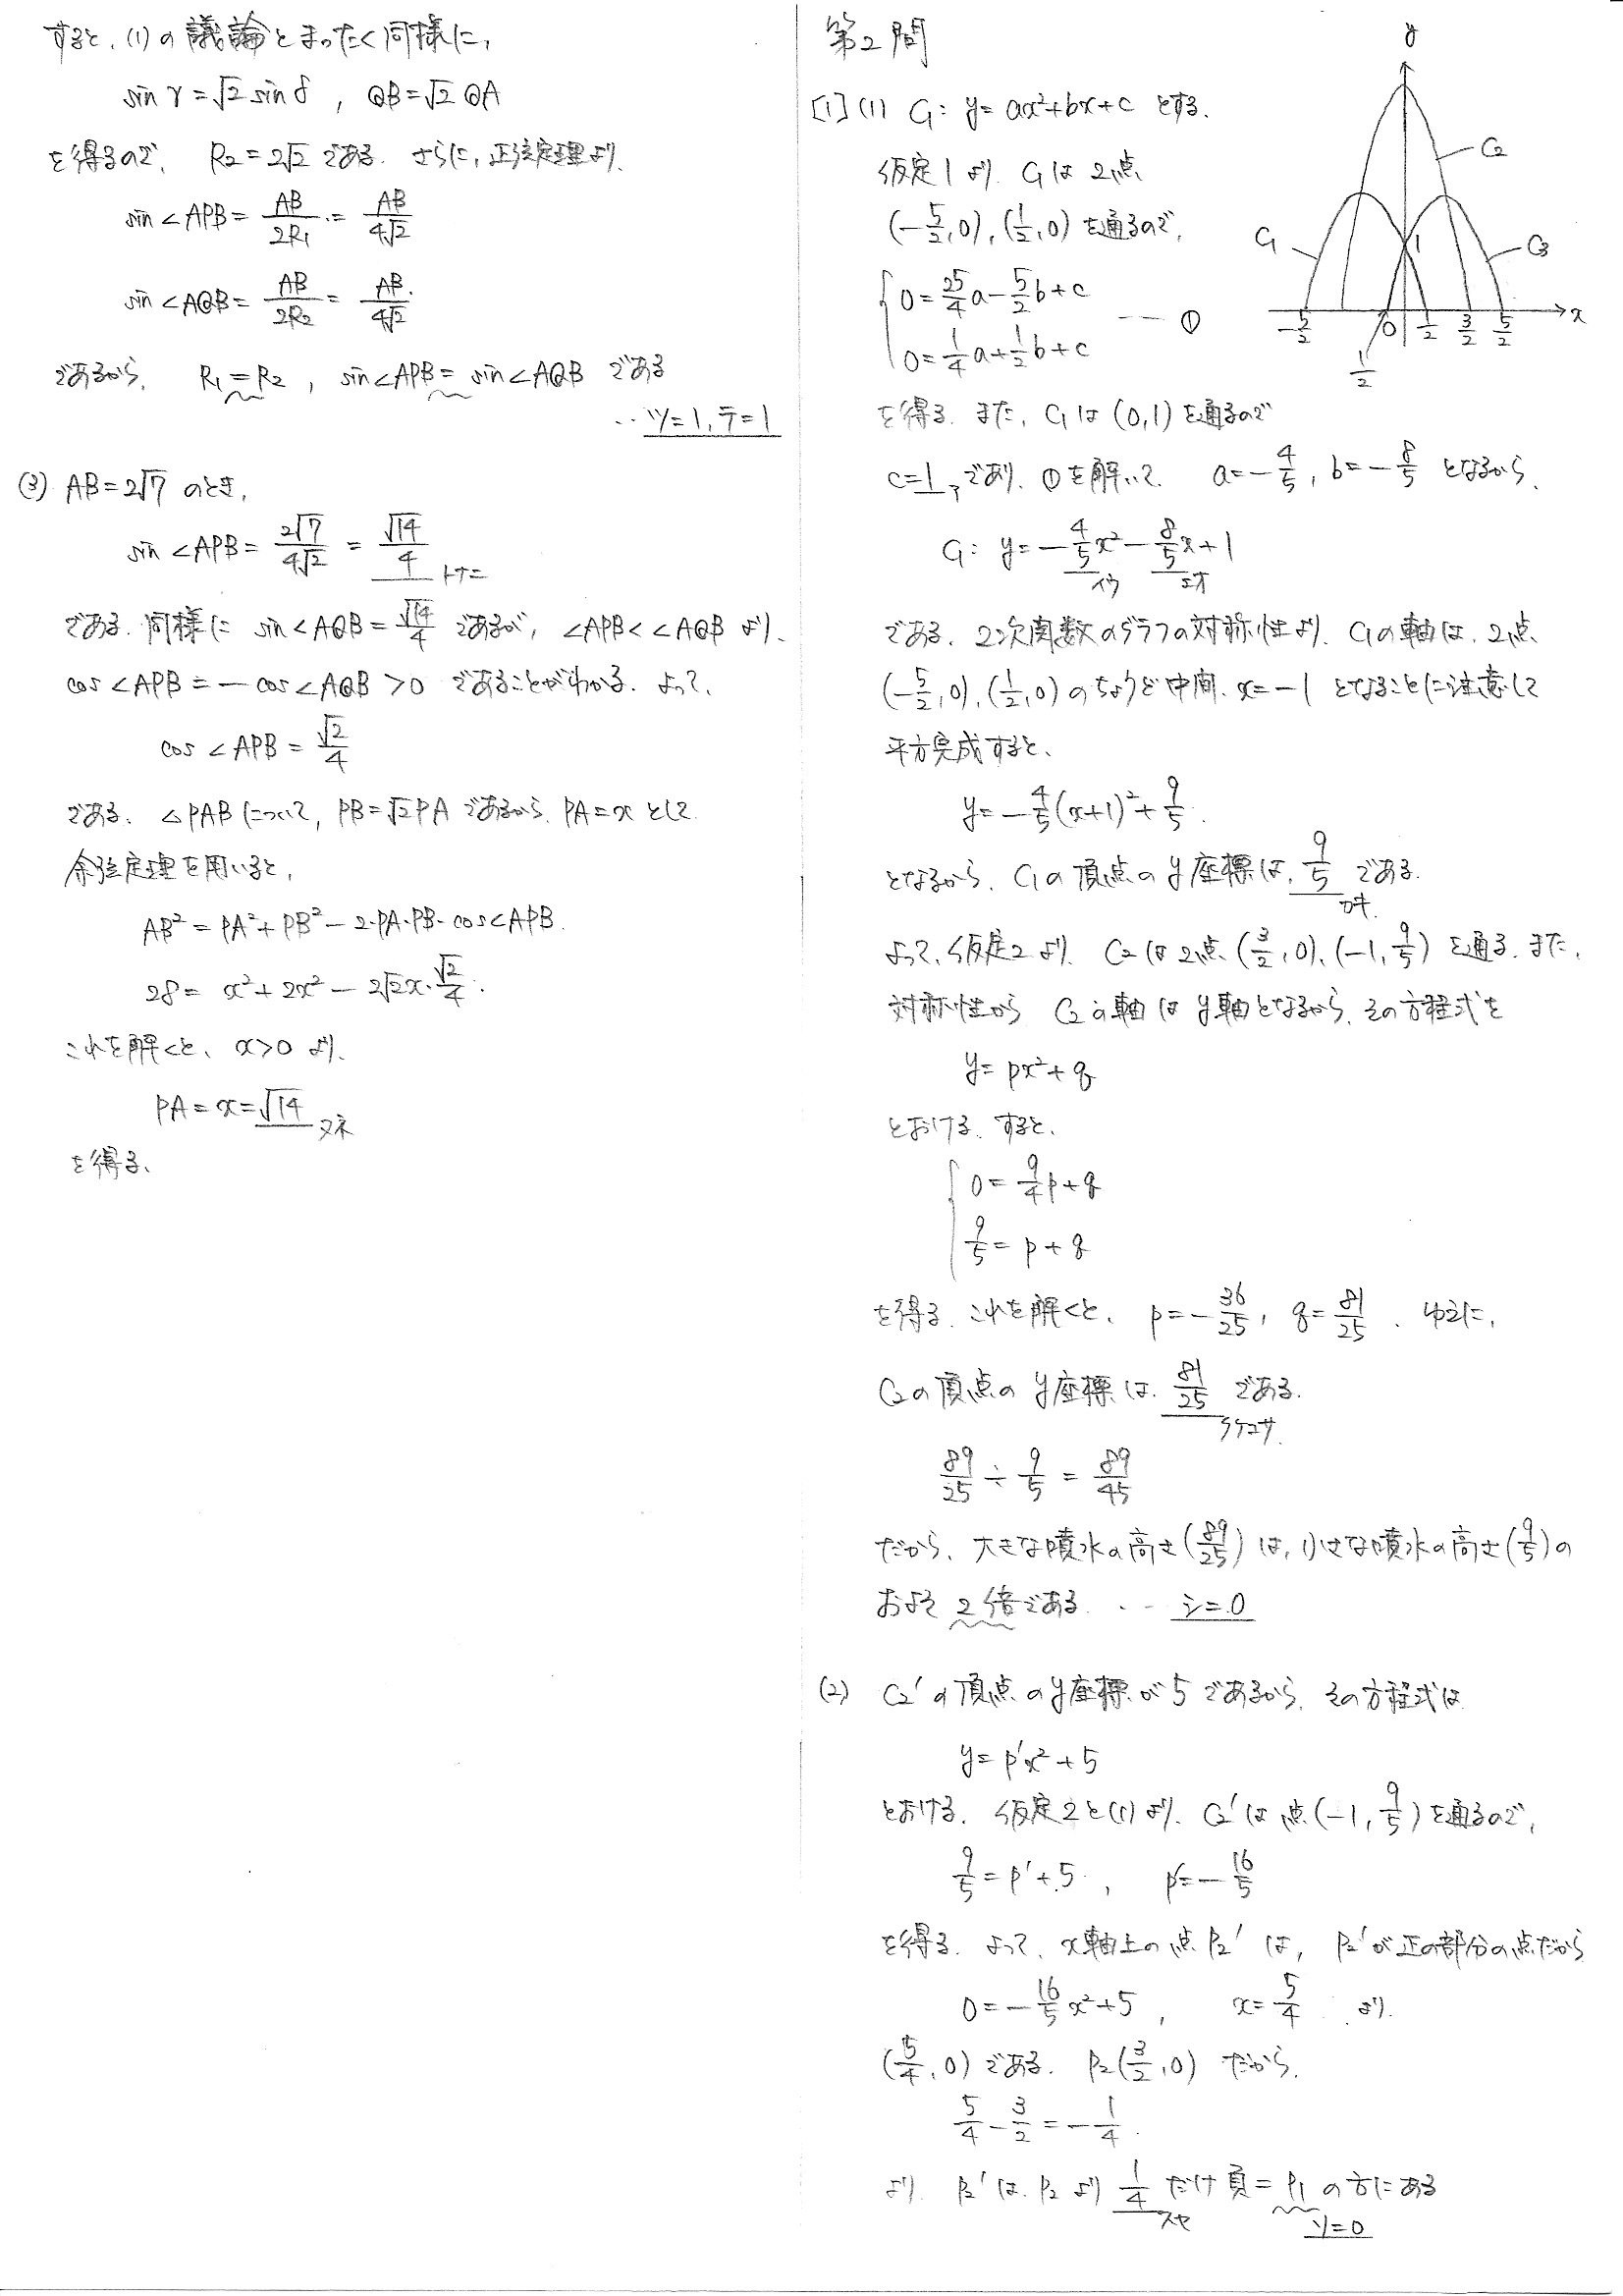 すると、(1)の議論とまったく同様に、
sin γ = √2 sin δ , QB = √2 QA
を得るので、 R₂ = 2√2 である. さらに、正弦定理より、
sin∠APB = AB/2R₁ = AB/4√2
sin∠AQB = AB/2R₂ = AB/4√2
であるから、 R₁ = R₂ , sin∠APB = sin∠AQB である
… ツ=1, テ=1
(3) AB = 2√7 のとき,
sin∠APB = 2√7/4√2 = √14/4 トナニ
である. 同様に sin∠AQB = √14/4 であるが, ∠APB < ∠AQB より、
cos∠APB = − cos∠AQB > 0 であることがわかる. よって、
cos∠APB = √2/4
である. △PABについて, PB = √2 PA であるから、PA = x として
余弦定理を用いると,
AB² = PA² + PB² − 2・PA・PB・cos∠APB.
28 = x² + 2x² − 2√2x・√2/4.
これを解くと、 x > 0 より、
PA = x = √14 ヌネ
を得る、
第2問
[1] (1) C₁: y = ax² + bx + c とする.
仮定1より、C₁は2点
(−5/2, 0), (1/2, 0) を通るので,
0 = 25/4 a − 5/2 b + c
0 = 1/4 a + 1/2 b + c
--- ①
y
C₂
C₁
1
C₃
−5/2
0
1/2
3/2
5/2
x
1/2
を得る. また, C₁は (0,1) を通るので
c = 1 ア であり、①を解いて、 a = −4/5, b = −8/5 となるから、
C₁: y = −4/5 x² − 8/5 x + 1
イウ エオ
である. 2次関数のグラフの対称性より、C₁の軸は、2点
(−5/2, 0), (1/2, 0) のちょうど中間、x = −1 となることに注意して
平方完成すると、
y = −4/5 (x+1)² + 9/5.
となるから、C₁の頂点のy座標は、9/5 である.
カキ
よって、仮定2より、C₂は2点 (3/2, 0), (−1, 9/5) を通る. また,
対称性から C₂の軸はy軸となるから、その方程式を
y = px² + q
とおける. すると、
0 = 9/4 p + q
9/5 = p + q
を得る. これを解くと、 p = −36/25, q = 81/25 . ゆえに,
C₂の頂点のy座標は、81/25 である.
クケコサ
89/25 ÷ 9/5 = 89/45
だから、大きな噴水の高さ(89/25)は, 小さな噴水の高さ(9/5)の
およそ2倍である. … シ=0
(2) C₂′の頂点のy座標が5であるから、その方程式は
y = p′x² + 5
とおける. 仮定2と(1)より、C₂′は点(−1, 9/5)を通るので,
9/5 = p′ + 5 , p′ = −16/5
を得る. よって、x軸上の点P₂′は, P₂′が正の部分の点だから
0 = −16/5 x² + 5 , x = 5/4 より.
(5/4, 0) である. P₂(3/2, 0) だから,
5/4 − 3/2 = −1/4.
より、P₂′は、P₂より 1/4 だけ負 = P₁の方にある
スセ ソ=0